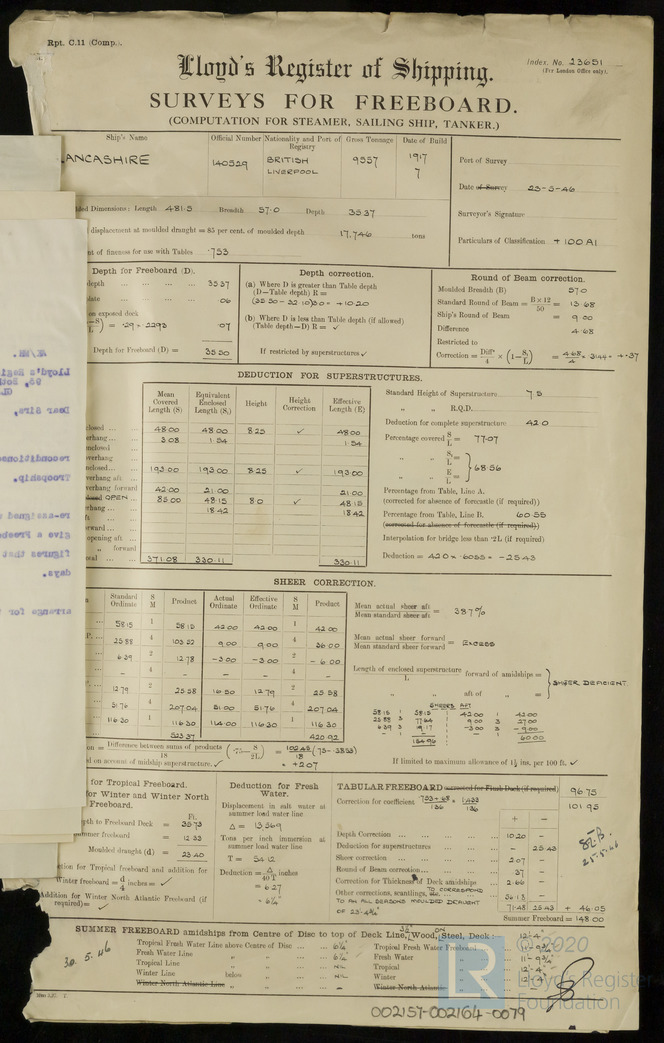 Rpt. C.11 (Comp.).
Lloyd's Register of Shipping.
Index. No. 23651
(For London Office only).
SURVEYS FOR FREEBOARD.
(COMPUTATION FOR STEAMER, SAILING SHIP, TANKER.)
Ship's Name Official Number Nationality and Port of Registry Gross Tonnage Date of Build
ANCASHIRE 140529 BRITISH LIVERPOOL 9557 1917 7
Port of Survey
Date of Survey 23-5-46
Surveyor's Signature
Particulars of Classification + 100 A1
Dimensions: Length 481.5 Breadth 57.0 Depth 35.37
displacement at moulded draught = 85 per cent. of moulded depth 17,746 tons
of fineness for use with Tables .753
Depth for Freeboard (D).
depth 35.37
.06
on exposed deck
.07
Depth for Freeboard (D) = 35.50
Depth correction.
(a) Where D is greater than Table depth
(D—Table depth) R =
(35.50 - 32.10)3.0 = +10.20
(b) Where D is less than Table depth (if allowed)
(Table depth—D) R = ✓
If restricted by superstructures ✓
Round of Beam correction.
Moulded Breadth (B) 57.0
Standard Round of Beam = B×12/50 = 13.68
Ship's Round of Beam = 9.00
Difference 4.68
Restricted to
Correction = Diff/4 × (1—S₁/L) = 4.68/4 × .3144 = +.37
DEDUCTION FOR SUPERSTRUCTURES.
Mean Covered Length (S) Equivalent Enclosed Length (S₁) Height Height Correction Effective Length (E)
closed 48.00 48.00 8.25 ✓ 48.00
erhang 3.08 1.54 1.54
nclosed
verhang
nclosed 193.00 193.00 8.25 ✓ 193.00
verhang aft
verhang forward 42.00 21.00 21.00
OPEN 85.00 48.15 8.0 ✓ 48.15
rhang 18.42 18.42
opening aft
" forward
371.08 330.11 330.11
Standard Height of Superstructure 7.5
" " R.Q.D.
Deduction for complete superstructure 42.0
Percentage covered S/L = 77.07
" " S₁/L =
" " E/L = } 68.56
Percentage from Table, Line A.
(corrected for absence of forecastle (if required))
Percentage from Table, Line B. 60.55
(corrected for absence of forecastle (if required))
Interpolation for bridge less than .2L (if required)
Deduction = 42.0 × .6055 = -25.43
SHEER CORRECTION.
Standard Ordinate S M Product Actual Ordinate Effective Ordinate S M Product
58.15 1 58.15 42.00 42.00 1 42.00
25.88 4 103.52 9.00 9.00 4 36.00
6.39 2 12.78 -3.00 -3.00 2 -6.00
- 4 - - - 4 -
12.79 2 25.58 16.50 12.79 2 25.58
51.76 4 207.04 51.00 51.76 4 207.04
116.30 1 116.30 114.00 116.30 1 116.30
523.37 420.92
Mean actual sheer aft / Mean standard sheer aft = 38.7%
Mean actual sheer forward / Mean standard sheer forward = EXCESS
Length of enclosed superstructure / L forward of amidships =
" " aft of " =
} SHEER DEFICIENT
SHEERS AFT
58.15 1 58.15 1 42.00 1 42.00
25.88 3 77.64 9.00 3 27.00
6.39 3 19.17 -3.00 3 -9.00
154.96 60.00
= Difference between sums of products / 18 (.75—S/2L) = 102.42/18 (.75-.3853)
= +2.07
on account of midship superstructure. ✓
If limited to maximum allowance of 1½ ins. per 100 ft. ✓
for Tropical Freeboard.
for Winter and Winter North
Freeboard.
Ft.
pth to Freeboard Deck = 35.73
ummer freeboard = 12.33
Moulded draught (d) = 23.40
tion for Tropical freeboard and addition for
Winter freeboard = d/4 inches = ✓
Addition for Winter North Atlantic Freeboard (if required) = ✓
Deduction for Fresh Water.
Displacement in salt water at
summer load water line
Δ = 13,569
Tons per inch immersion at
summer load water line
T = 54.12
Deduction = Δ/40T inches
= 6.27
= 6¼"
TABULAR FREEBOARD corrected for Flush Deck (if required) 96.75
Correction for coefficient .753+.68/1.36 = 1.433/1.36 101.95
+ -
Depth Correction 10.20 -
Deduction for superstructures - 25.43
Sheer correction 2.07 -
Round of Beam correction .37 -
Correction for Thickness of Deck amidships 2.66 -
Other corrections, scantlings, etc. TO CORRESPOND 56.18
TO AN ALL SEASONS MOULDED DRAUGHT
OF 23'-4¾"
71.48 25.43 + 46.05
Summer Freeboard = 148.00
25.5.46
SUMMER FREEBOARD amidships from Centre of Disc to top of Deck Line, 3½" Wood, ON Steel, Deck:- 12'-4"
Tropical Fresh Water Line above Centre of Disc 6¼"
Fresh Water Line " " 6¼"
Tropical Line " " NIL
Winter Line below " " NIL
Winter North Atlantic Line " " -
Tropical Fresh Water Freeboard 11'-9¾"
Fresh Water " 11'-9¾"
Tropical " 12'-4"
Winter " 12'-4"
Winter North Atlantic " -
30.5.46
© 2020
Lloyd's Register
Foundation
LR
002157-002164-0079
Lloyd's Regis
Dear Sirs,
recondition
Troopship.
re-assigned
give a Freeb
figures that
days.
arrange for